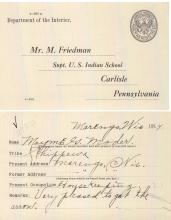 Department of the Interior,
Mr. M. Friedman
Supt. U. S. Indian School
Carlisle
Pennsylvania
Marengo, Wis
Name Mayme G. Moder
Tribe Chippewa
Present Address Marengo, Wis.
Former Address
Present Occupation Housekeeping
Remarks Very pleased to get the
arrow.